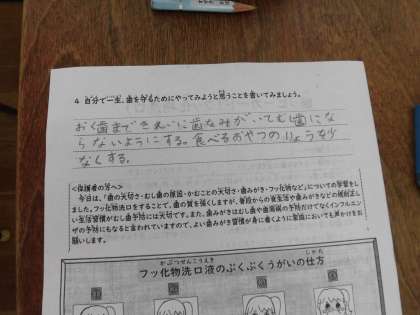 4 自分で一生、歯を守るためにやってみようと思うことを書いてみましょう。
おく歯まできれいに歯みがいてむし歯にな
らないようにする。食べるおやつのりょうを少
なくする。
<保護者の方へ>
今日は、「歯の大切さ・むし歯の原因・かむことの大切さ・歯みがき・フッ化物など」についての学習をし
ました。フッ化物洗口をすることで、歯の質を強くしますが、普段からの食生活や歯みがきなどの規則正し
い生活習慣がむし歯予防には大切です。また、歯みがきはむし歯や歯周病の予防だけでなくインフルエン
ザの予防にもなると言われていますので、よい歯みがき習慣が身に着くように家庭においても声かけをお
願いします。
フッ化物洗口液のぶくぶくうがいの仕方